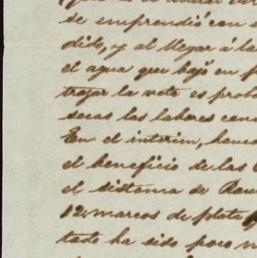 se emprendió con
dido, y al llegar á la
el agua que bajó en
trajar la veta es proba
secas las labores con
En el interim, hemos
el beneficio de las
el sistema de
12 marcos de plata
tado ha sido poco